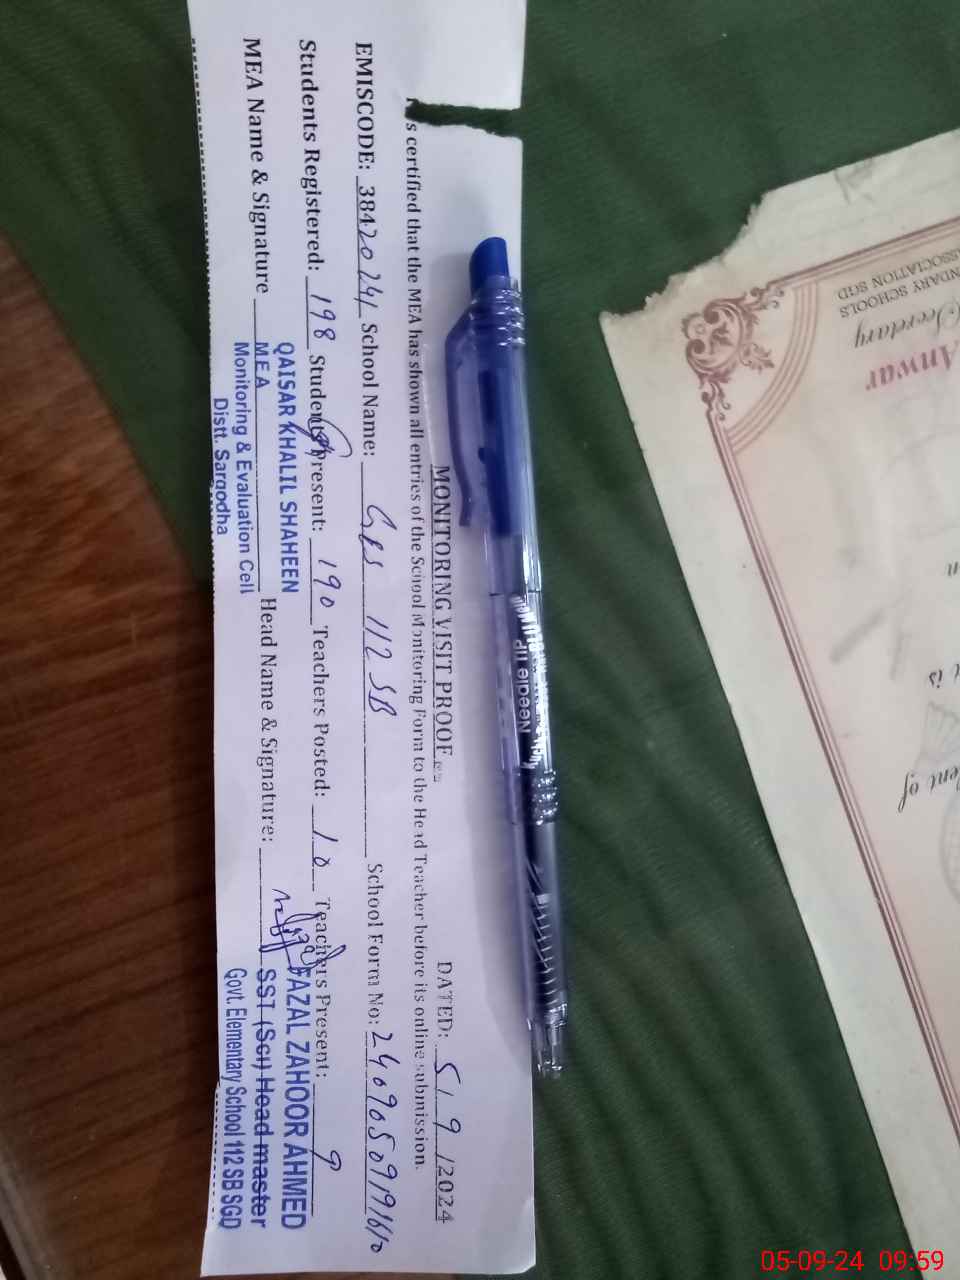 MONITORING VISIT PROOF
DATED: 5/9/2024
s certified that the MEA has shown all entries of the School Monitoring Form to the Head Teacher before its online submission.
EMISCODE: 38420241 School Name: GES 112 SB School Form No:
Students Registered: 198 Students Present: 190 Teachers Posted: 10 Teachers Present: 9
MEA Name & Signature Head Name & Signature:
QAISAR KHALIL SHAHEEN
MEA
Monitoring & Evaluation Cell
Distt. Sargodha
FAZAL ZAHOOR AHMED
SST (Sci) Head master
Govt. Elementary School 112 SB SGD
Needle TIP
NDARY SCHOOLS
ASSOCIATION SGD
Secretary
Anwar
t is
ent of
05-09-24 09:59